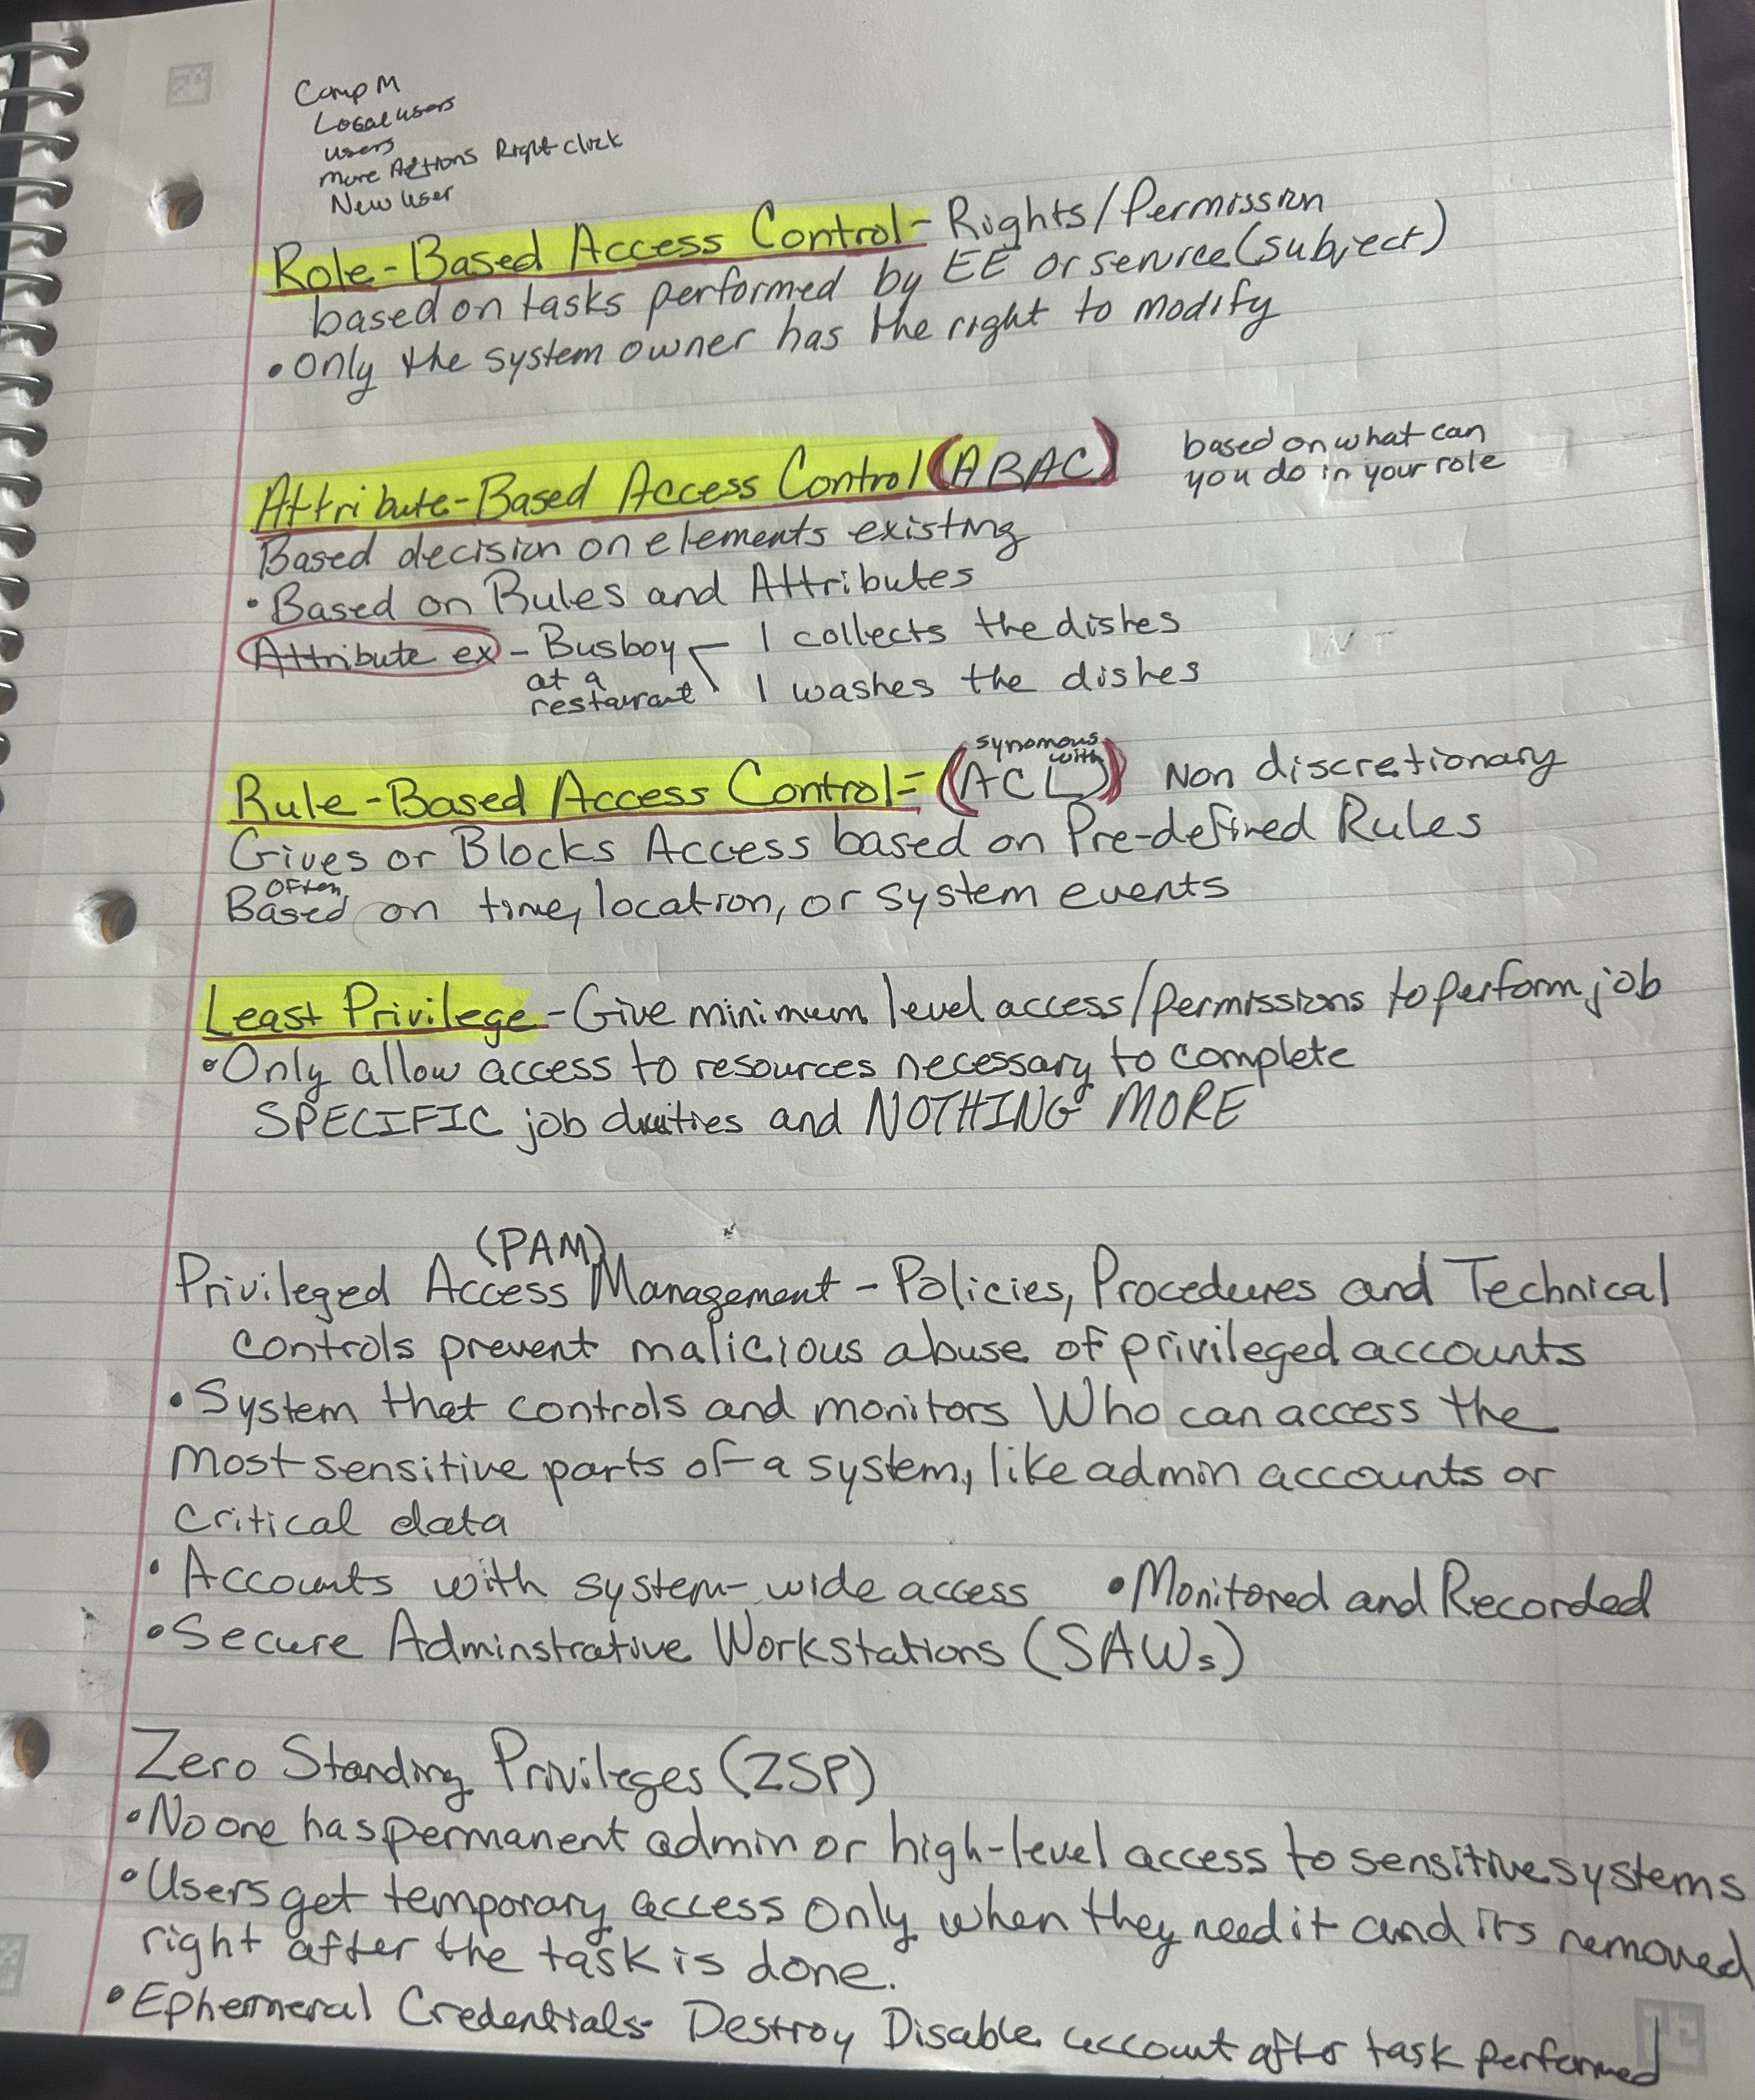 Comp M
Local users
users
more Actions Right click
New user
Role-Based Access Control - Rights/Permission
based on tasks performed by EE or service (subject)
• only the system owner has the right to modify
Attribute-Based Access Control (ABAC)
based on what can
you do in your role
Based decision on elements existing
• Based on Rules and Attributes
Attribute ex - Busboy - 1 collects the dishes
at a
restaurant 1 washes the dishes
synomous
with
Rule-Based Access Control = (ACL) Non discretionary
Gives or Blocks Access based on Pre-defined Rules
often
Based on time, location, or system events
Least Privilege - Give minimum level access/permissions to perform job
• Only allow access to resources necessary to complete
SPECIFIC job duties and NOTHING MORE
(PAM)
Privileged Access Management - Policies, Procedures and Technical
controls prevent malicious abuse of privileged accounts
• System that controls and monitors Who can access the
most sensitive parts of a system, like admin accounts or
critical data
• Accounts with system-wide access • Monitored and Recorded
• Secure Adminstrative Workstations (SAWs)
Zero Standing Privileges (ZSP)
• No one has permanent admin or high-level access to sensitive systems
• Users get temporary access only when they need it and its removed
right after the task is done.
• Ephemeral Credentials - Destroy Disable account after task performed